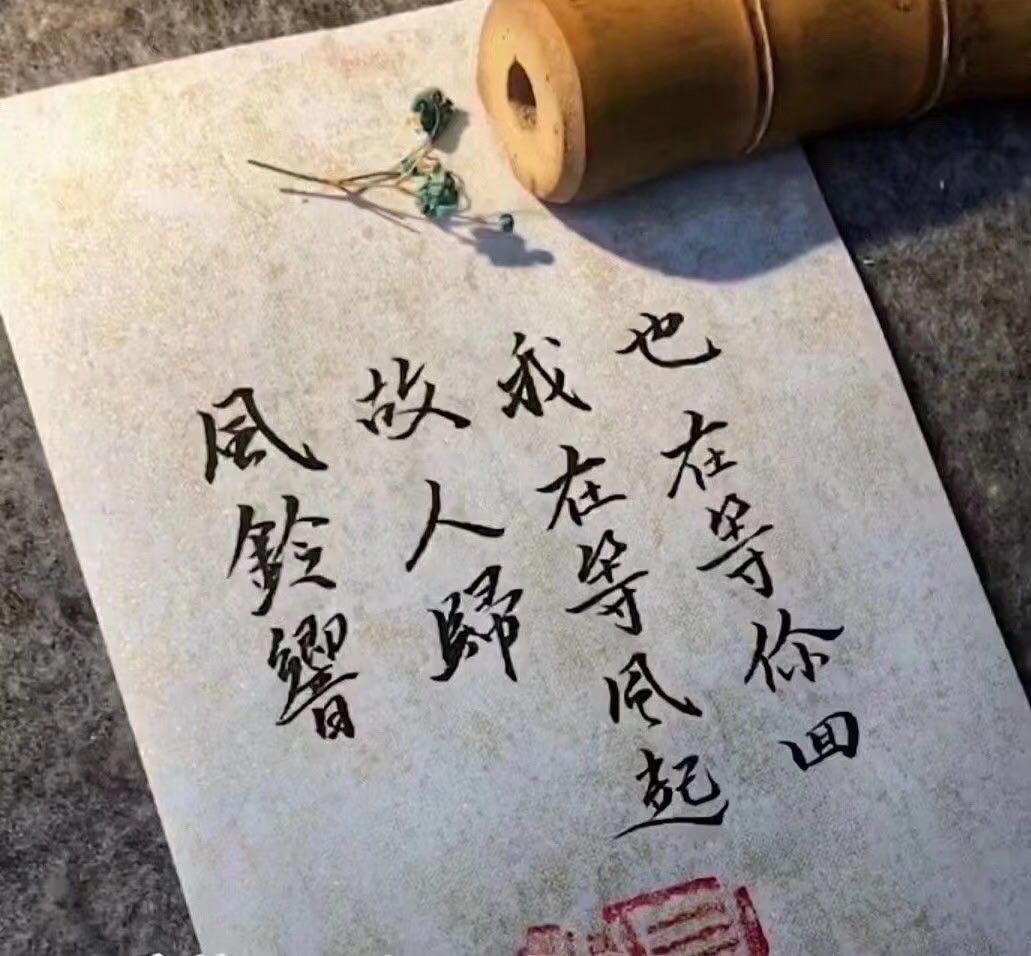 風鈴響
故人歸
我在等風起
也在等你回